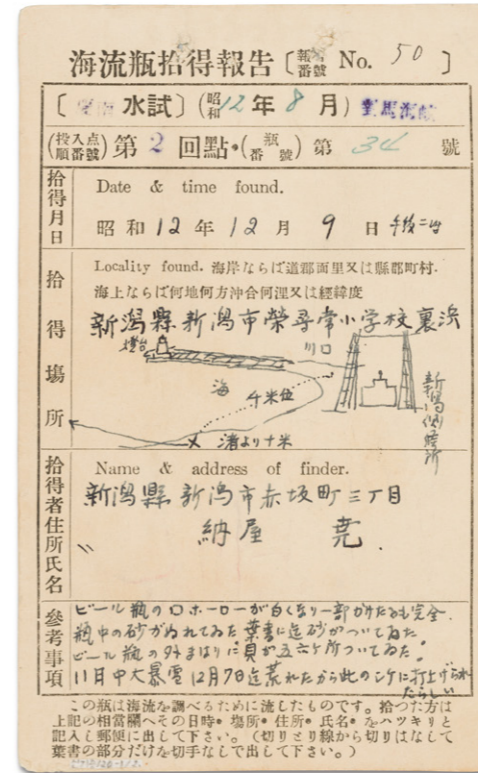 海流瓶拾得報告〔報告番號 No. 50〕
〔水試〕(昭和12年8月) 對馬海峽
(投入点順番號)第2回點・(瓶番號)第34號
拾得月日
Date & time found.
昭和12年12月9日午後二時
拾得場所
Locality found. 海岸ならば道郡面里又は縣郡町村.
海上ならば何地何方沖合何浬又は經緯度
新潟縣新潟市榮尋常小学校裏浜
燈台
川口
海
千米位
渚より十米
新潟
拾得者住所氏名
Name & address of finder.
新潟縣新潟市赤坂町三丁目
〃 納屋 堯.
參考事項
ビール瓶の口ホーローが白くなり一部かけたるも完全.
瓶中の砂がぬれてゐた.葉書に迄砂がついてゐた.
ビール瓶の外まはりに貝が五六ヶ所ついてゐた.
11月中大暴雪12月7日迄荒れたから此のシケに打上げられ
たらしい
この瓶は海流を調べるために流したものです。拾つた方は
上記の相當欄へその日時・場所・住所・氏名・をハツキリと
記入し郵便に出して下さい。(切りとり線から切りはなして
葉書の部分だけを切手なしで出して下さい。)